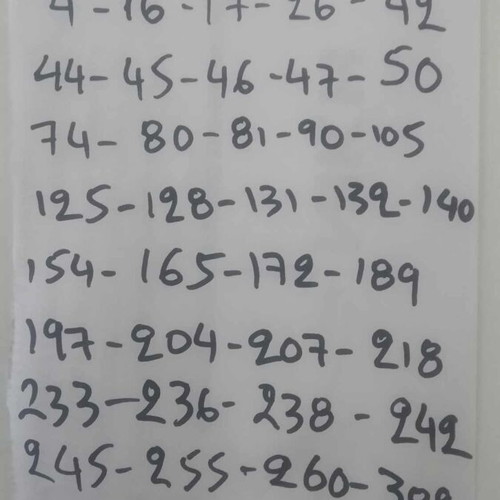 4-16-17-26-42
44-45-46-47-50
74-80-81-90-105
125-128-131-132-140
154-165-172-189
197-204-207-218
233-236-238-242
245-255-260-